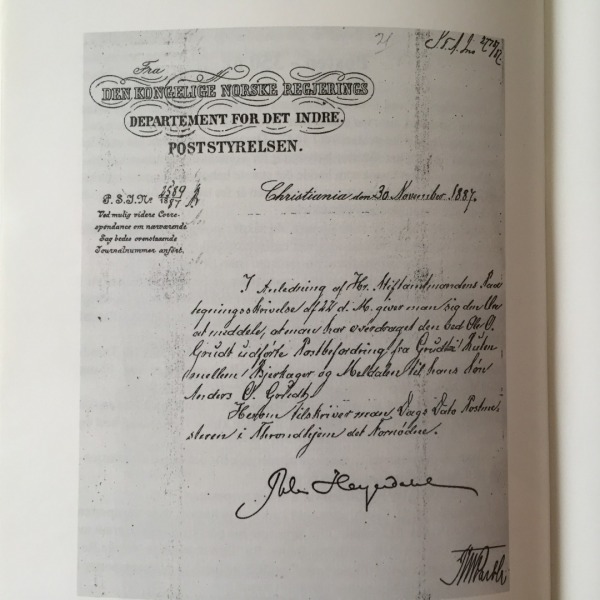 Fra
DEN KONGELIGE NORSKE REGJERINGS
DEPARTEMENT FOR DET INDRE.
POSTSTYRELSEN.
P. S. J. No 2589
1887
Ved mulig videre Corre-
spondance om nærværende
Sag bedes ovenstaaende
Journalnummer anført.
Christiania den 30 November 1887.
I Anledning af Hr. Stiftamtmandens Paa-
tegningsskrivelse af 22 d. M. giver man sig den Ære
at meddele, at man har overdraget den ved Ole O.
Grudt udførte Postbefordring fra Grudt i Ruten
mellem Bjerkager og Meldalen til hans Søn
Anders O. Grudt.
Herom tilskriver man Dags Dato Postme-
steren i Throndhjem det Fornødne.
Heyerdahl